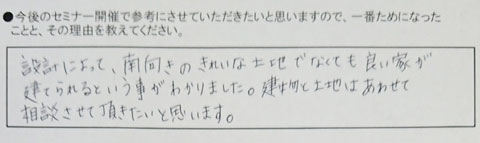 ●今後のセミナー開催で参考にさせていただきたいと思いますので、一番ためになった
ことと、その理由を教えてください。
設計によって、南向きのきれいな土地でなくても良い家が
建てられるという事がわかりました。建物と土地はあわせて
相談させて頂きたいと思います。